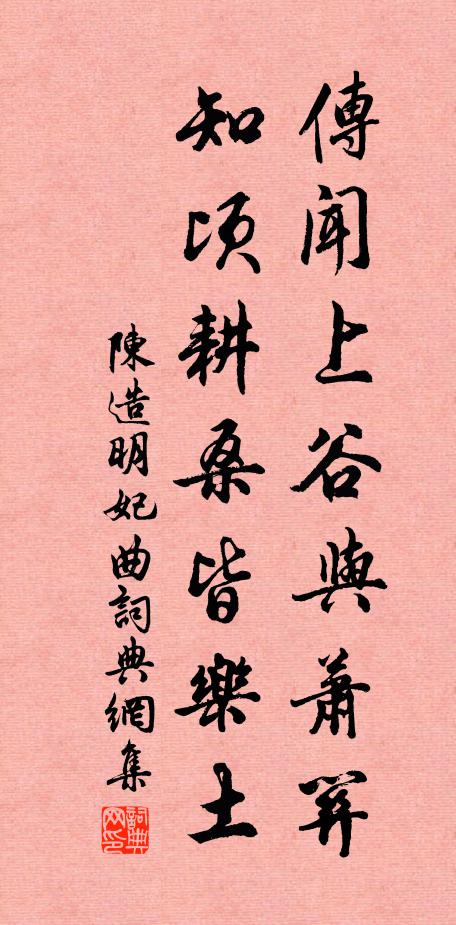 傳聞上谷與蕭關
知頃耕桑皆樂土
陳造明妃曲詞典網集
詞典
网印